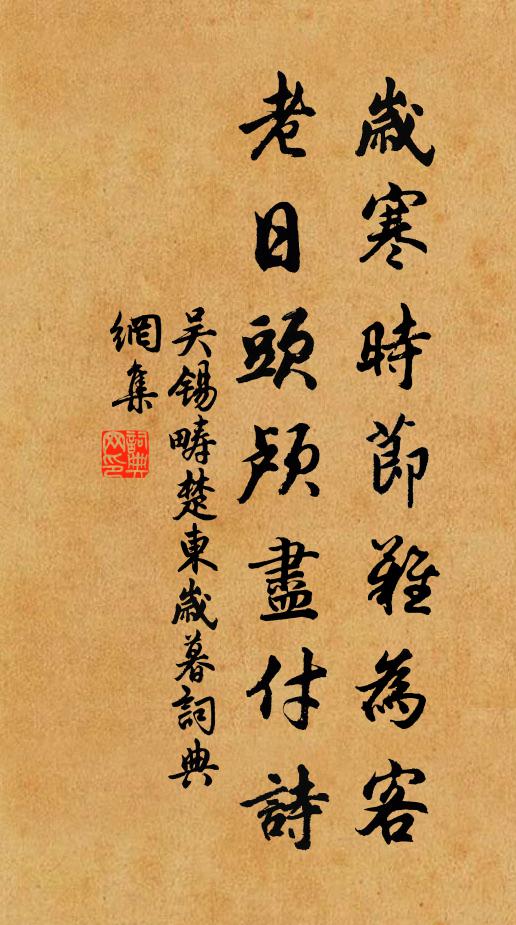 歲寒時節難為客
老日頭顱盡付詩
吴錫疇楚東歲暮詞典
網集
詞典
网印